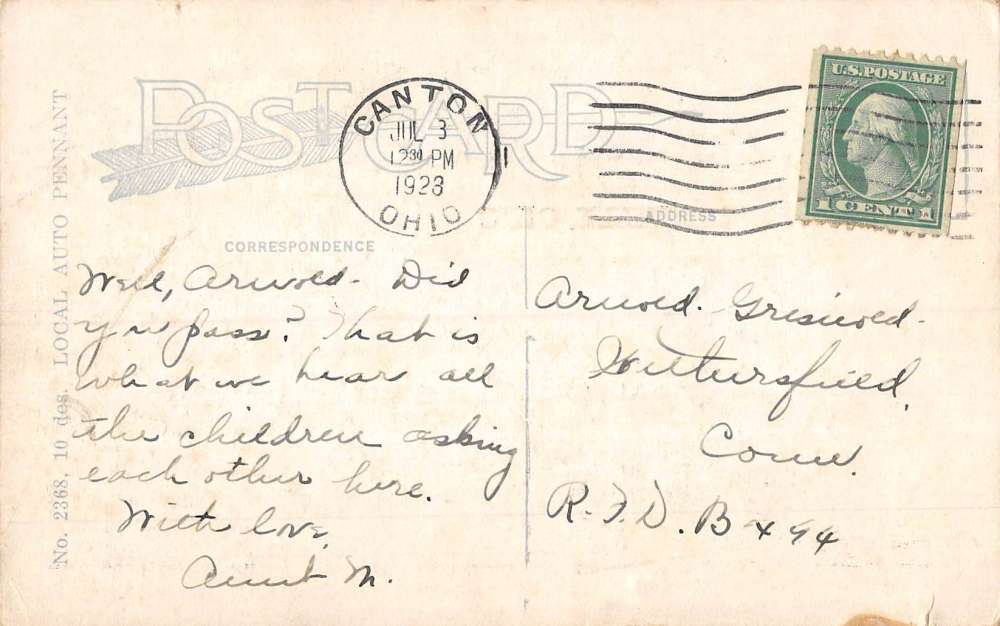 POST CARD
CANTON
JUL 3
12 30 PM
1923
OHIO
1
U.S. POSTAGE
1 CENT 1
CORRESPONDENCE
ADDRESS
No. 2368, 10 des. LOCAL AUTO PENNANT
Well, Arnold - Did
you pass? That is
what we hear all
the children asking
each other here.
With love,
Aunt M.
Arnold Griswold
Wethersfield,
Conn.
R.F.D. Bx 94